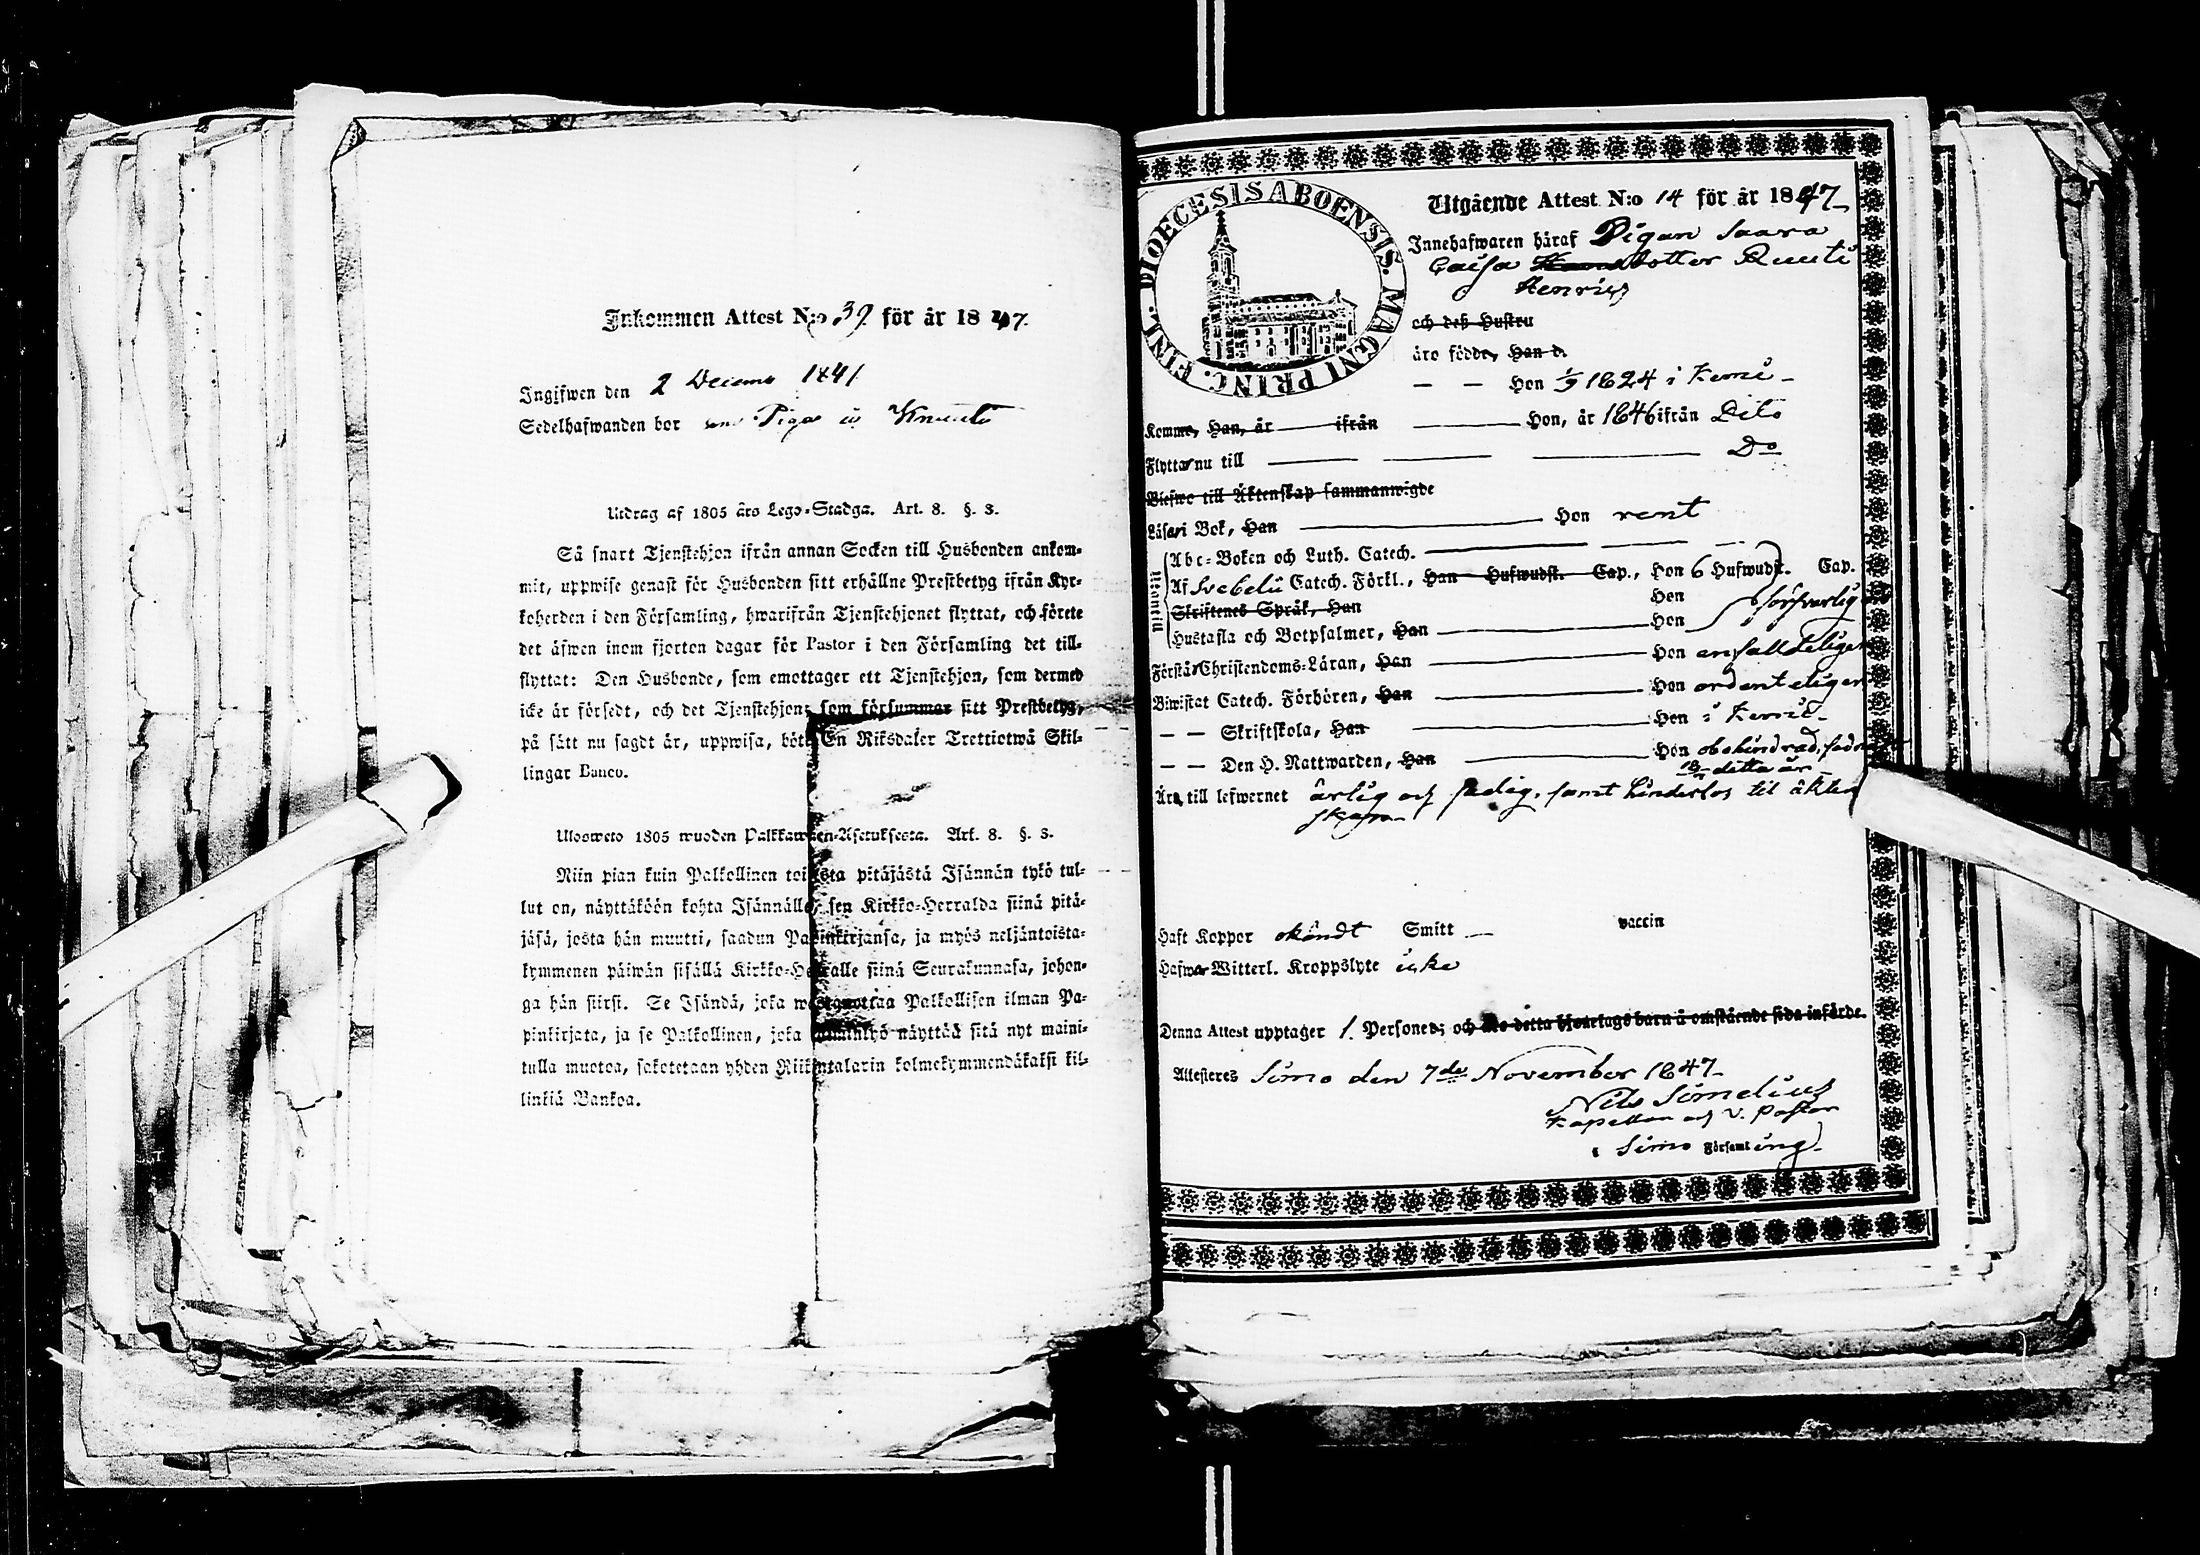 Inkommen Attest N:o 39 för år 1847.
Ingifwen den 2 Decemb 1841
Sedelhafwanden bor som Piga i Knuuti
Utdrag af 1805 års Lego-Stadga. Art. 8. §. 3.
Så snart Tjenstehjon ifrån annan Socken till Husbonden ankom-
mit, uppwise genast för Husbonden sitt erhållne Prestbetyg ifrån Kyr-
koherden i den Församling, hwarifrån Tjenstehjonet flyttat, och förete
det äfwen inom fjorton dagar för Pastor i den Församling det till-
flyttat: Den Husbonde, som emottager ett Tjenstehjon, som dermed
icke är försedt, och det Tjenstehjon, som försummar sitt Prestbetyg,
på sätt nu sagdt är, uppwisa, böte En Riksdaler Trettiotwå Skil-
lingar Banco.
Ulosweto 1805 wuoden Palkkawäen-Asetuksesta. Art. 8. §. 3.
Niin pian kuin Palkollinen toisesta pitäjästä Isännän tykö tul-
lut on, näyttäköön kohta Isännälle, sen Kirkko-Herralda siinä pitä-
jäsä, josta hän muutti, saadun Papinkirjansa, ja myös neljäntoista-
kymmenen päiwän sisällä Kirkko-Herralle siinä Seurakunnasa, johon-
ga hän siirsi. Se Isändä, joka wastanottaa Palkollisen ilman Pa-
pinkirjata, ja se Palkollinen, joka laiminlyö näyttää sitä nyt maini-
tulla muotoa, sakotetaan yhden Riikintalarin kolmekymmendäkaksi kil-
linkiä Bankoa.
DIOECESIS ABOENSIS. MAGNI PRINC. FINL.
Utgående Attest N:o 14 för år 1847
Innehafwaren häraf Pigan Saara
Caisa dotter Ruuti
Henrics
och deß Hustru
äro födde, Han d.
— — Hon 1/9 1824 i Kemi
Komme, Han, år ifrån Hon, år 1846 ifrån Dito
Flytta nu till Do
Blefwo till Äktenskap sammanwigde
Läsa i Bok, Han Hon rent
Utantill
Abc-Boken och Luth. Catech.
Af Svebelii Catech. Förkl., Han Hufwudst. Cap., Hon 6 Hufwudst. Cap.
Skriftenes Språk, Han Hon försvarlig
Hustafla och Botpsalmer, Han Hon
Förstår Christendoms-Läran, Han Hon enfalldeligen
Biwistat Catech. Förhören, Han Hon ordenteligen
— — Skriftskola, Han Hon i Kemi
— — Den H. Nattwarden, Han Hon obehindrad,
detta år
Äro till lefwernet ärlig och sedig, samt hinderlös til äkten
skap
Haft Koppor okändt Smitt — vaccin
Hafwa Witterl. Kroppslyte icke
Denna Attest upptager 1. Personer; och äro detta hjonelags barn å omstående sida införde.
Attesteres Simo den 7de November 1847
Nils Simelius
Kapellan och V. Pastor
i Simo Församling